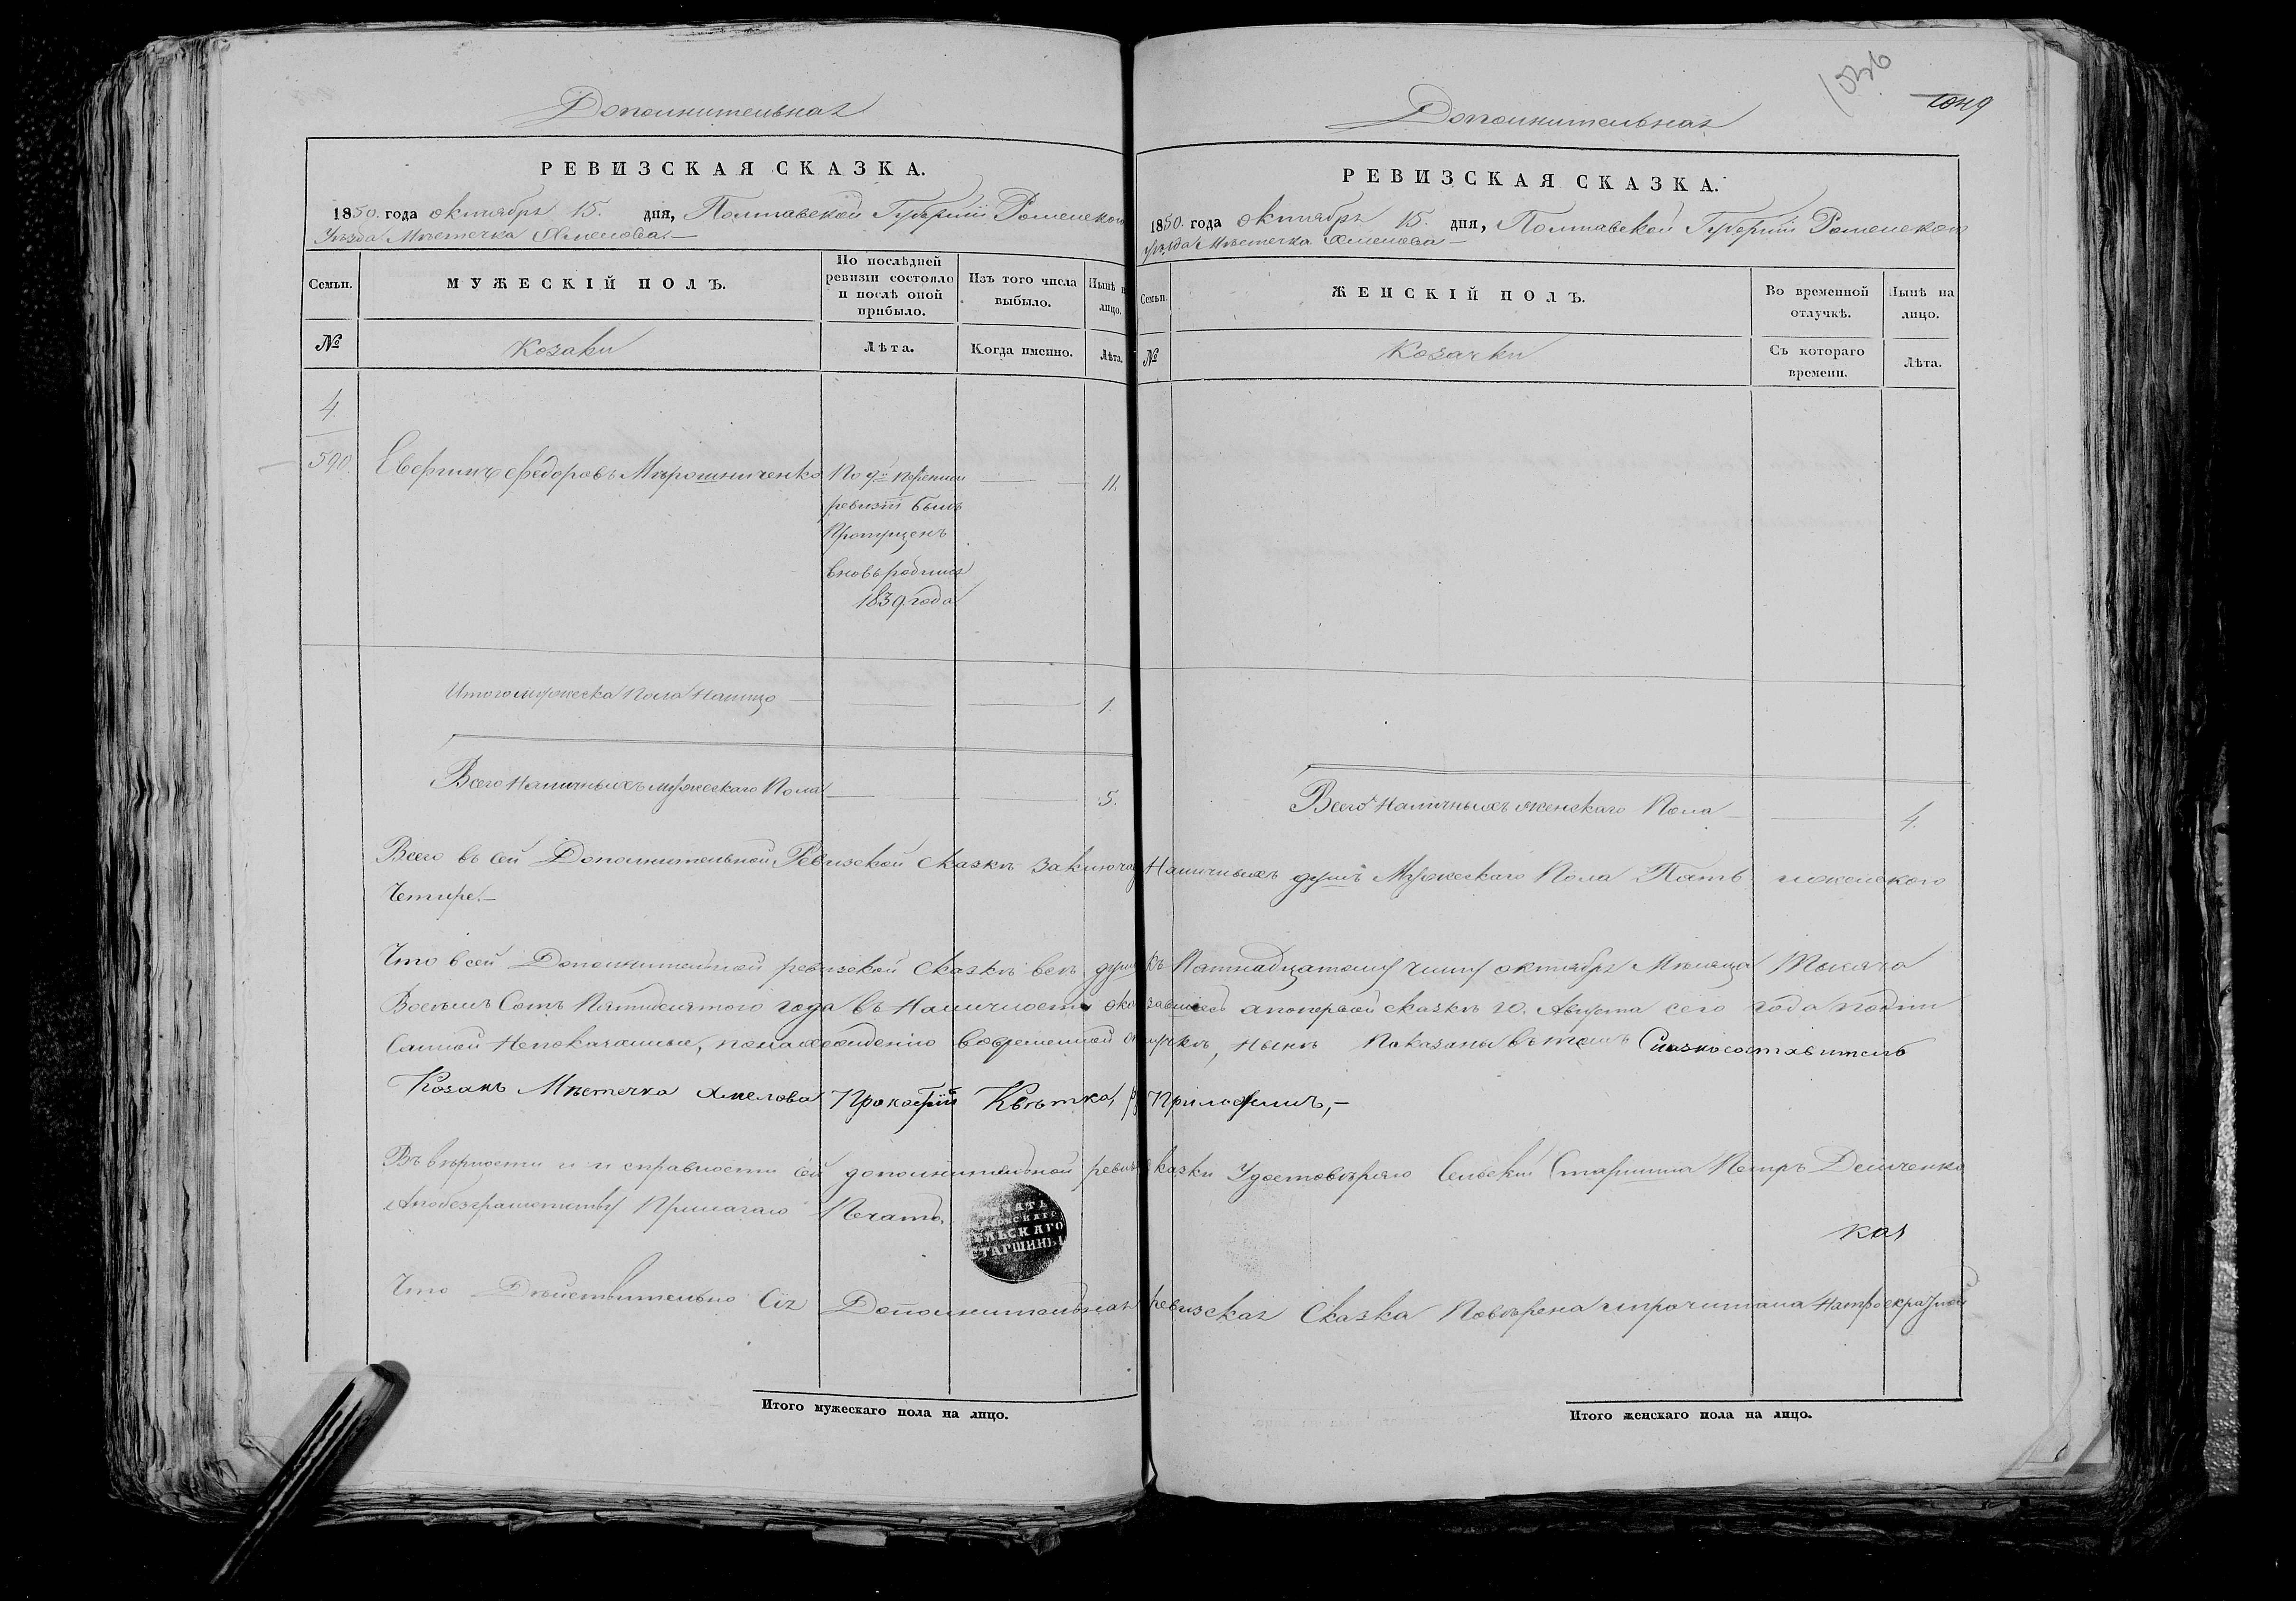 Дополнительная
РЕВИЗСКАЯ СКАЗКА.
1850. года октября 15. дня, Полтавской Губерніи Роменского
Уѣзда Мѣстечка Хмелова
Семьи.
МУЖЕСКІЙ ПОЛЪ.
По послѣдней ревизіи состояло и послѣ оной прибыло.
Изъ того числа выбыло.
Нынѣ н лицо.
№
Козаки
Лѣта.
Когда именно.
Лѣта.
4.
590.
Евфимъ Федоровъ Мѣрошниченко
По 9й
ревизіи былъ
Пропущенъ
вновь родился
1839 года
11.
Итого мужеска Пола Налицо
1.
Всего Наличныхъ мужескаго Пола
5.
1036
1049
Дополнительная
РЕВИЗСКАЯ СКАЗКА.
1850. года октября 15. дня, Полтавской Губерніи Роменского
Уѣзда Мѣстечка Хмелова
Семьи.
ЖЕНСКІЙ ПОЛЪ.
Во временной отлучкѣ.
Нынѣ на лицо.
№
Козачки
Съ котораго времени.
Лѣта.
Всего Наличныхъ женскаго Пола
4.
Всего въ сей Дополнительной Ревизской сказкѣ заключа Наличныхъ душъ Мужескаго Пола Пять иженского
Четире.
Что всей Дополнительной ревизской сказкѣ всѣ души къ Патнадцатому числу октября Мѣсяца Тысяча
Восемъ Сотъ Пятидесятого года въ Наличности оказавшіесь апопервой сказкѣ 10. Августа сего года подпи
санной Непоказанные, вовременной отлучкѣ, нынѣ Показаны въ томъ Сказкосоставитель
Козакъ Мѣстечка Хмелова Прокофій Квѣтка, р Приложилъ,
Въ вѣрности и исправности сей дополнительной ревизской сказки Удостовѣряю Сельскій Старшина Петръ Демченко
Апобезграмотству Прилагаю Печать.
ЕЛЬСКАГО
СТАРШИНЫ
кая
Что Дѣйствительно Сія Дополнительная ревизская Сказка Повѣрена ипрочитана
Итого мужескаго пола на лицо.
Итого женскаго пола на лицо.